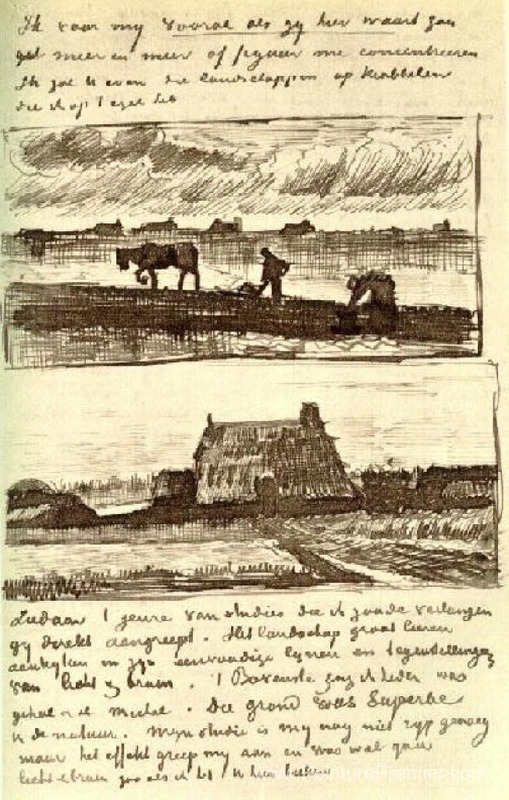 Ik voor my vooral als gy hier waart zou
meer en meer op figuur me concentreeren
Ik zal U even de landschappen op krabbelen
die ik op l ezel heb
Ziedaar t genre van studies die ik zoude verlangen
gy direkt aangreept. Het landschap groot leeren
aankyken in zyn eenvoudige lynen en tegenstellingen
van licht & bruin. 't Bovenste zag ik heden was
geheel Michel. Die grond was superbe
in de natuur. Myn studie is my nog niet ryp genoeg
maar het effekt greep my aan en was wel qua
licht & bruin zoo als ik het U hier